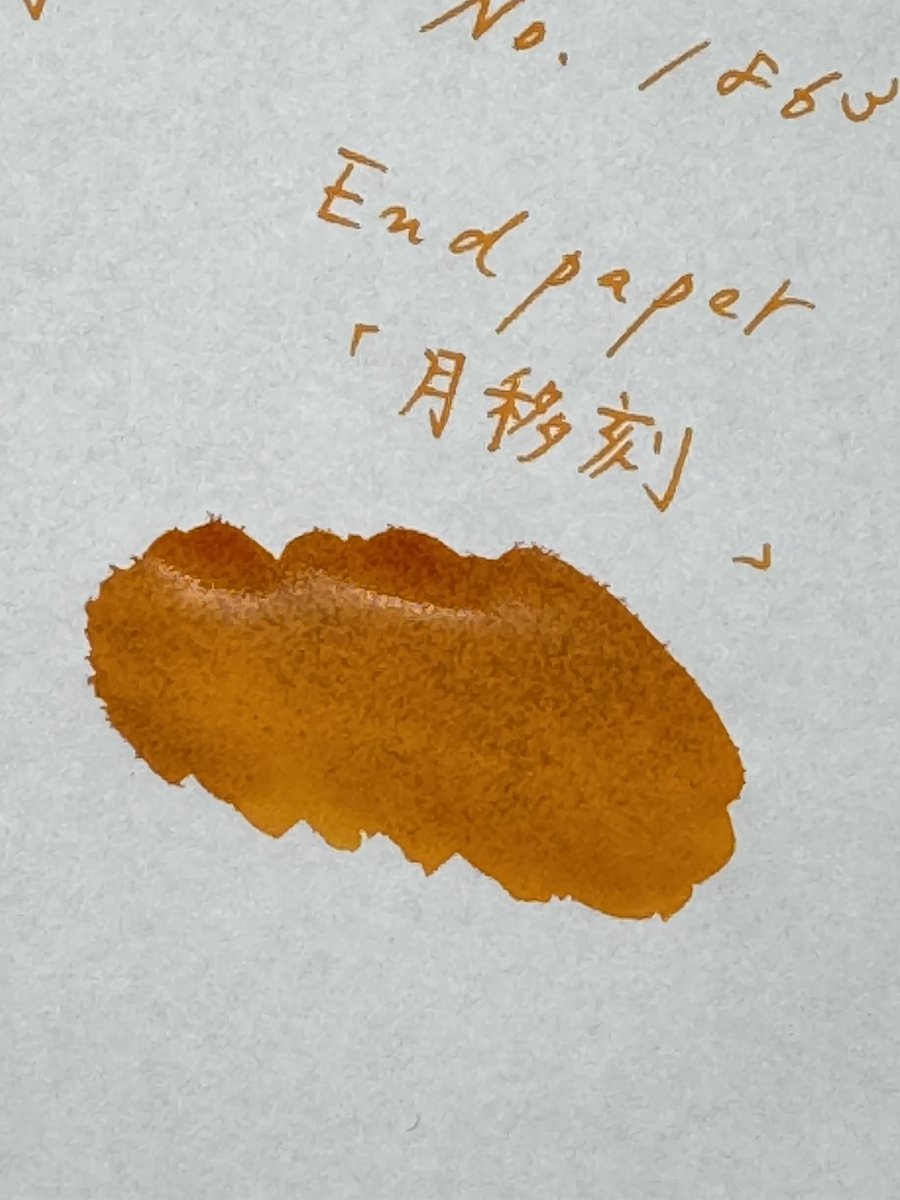 No. 1863
Endpaper
「月移刻
」